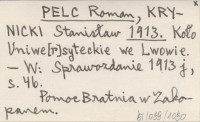 PELC Roman, KRY-
NICKI Stanisław 1913. Koło
Uniwe[r]syteckie we Lwowie.
— W: Sprawozdanie 1913 j,
s. 46.
Pomoc Bratnia w Zako-
panem.